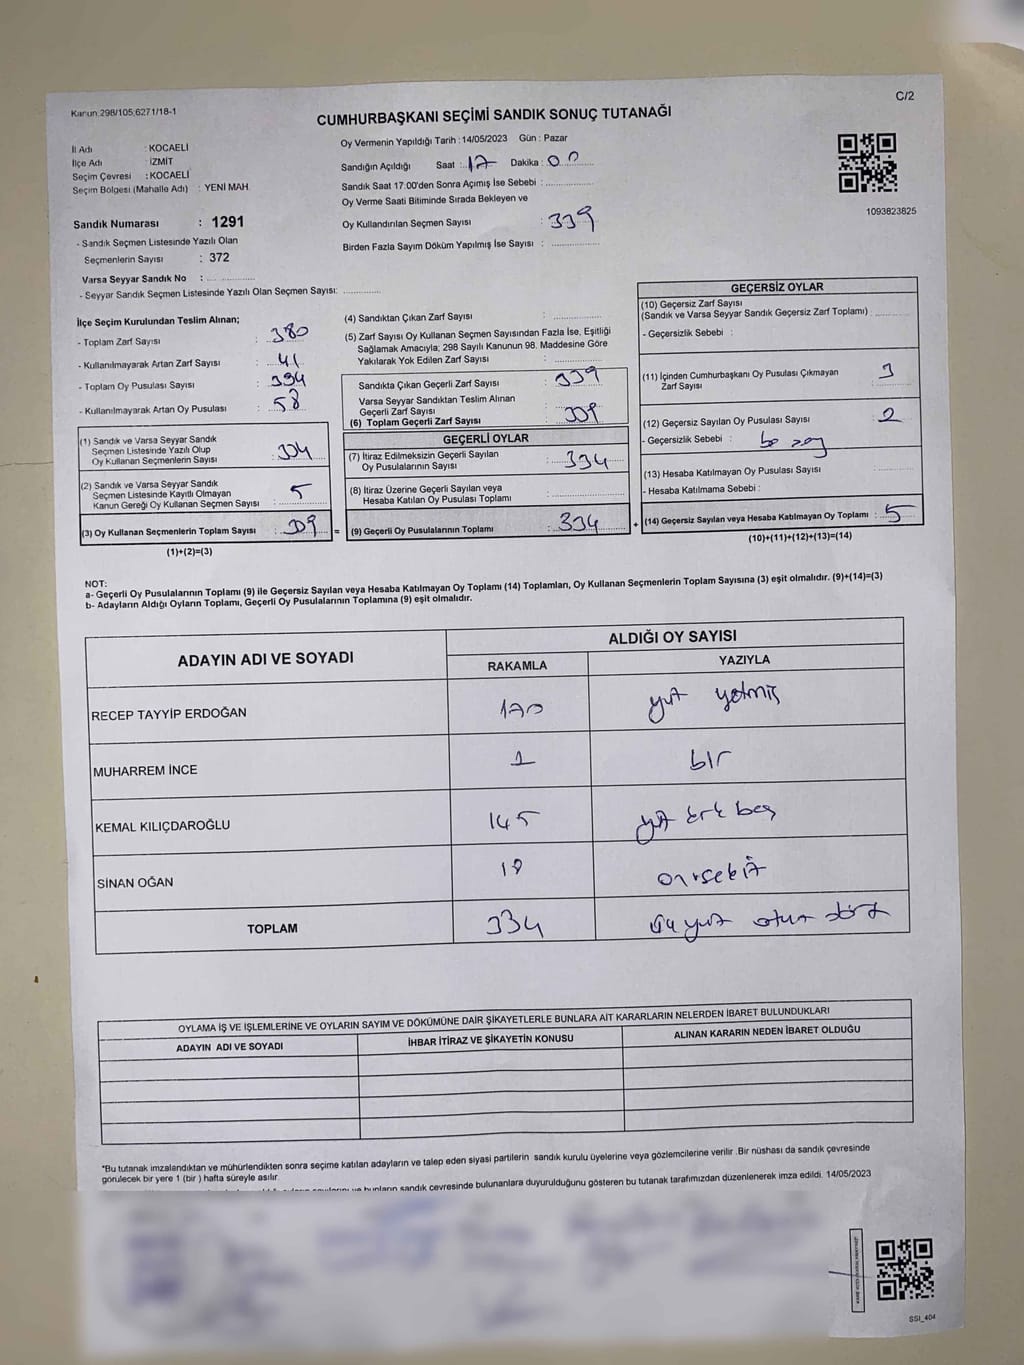 Kanun:298/105;6271/18-1
C/2
CUMHURBAŞKANI SEÇİMİ SANDIK SONUÇ TUTANAĞI
İl Adı : KOCAELİ
İlçe Adı : İZMİT
Seçim Çevresi : KOCAELİ
Seçim Bölgesi (Mahalle Adı) : YENİ MAH.
Oy Vermenin Yapıldığı Tarih : 14/05/2023 Gün : Pazar
Sandığın Açıldığı Saat : 17 Dakika : 00
Sandık Saat 17.00'den Sonra Açımış İse Sebebi :
Oy Verme Saati Bitiminde Sırada Bekleyen ve
Oy Kullandırılan Seçmen Sayısı : 339
Birden Fazla Sayım Döküm Yapılmış İse Sayısı :
1093823825
Sandık Numarası : 1291
- Sandık Seçmen Listesinde Yazılı Olan
Seçmenlerin Sayısı : 372
Varsa Seyyar Sandık No :
- Seyyar Sandık Seçmen Listesinde Yazılı Olan Seçmen Sayısı:
İlçe Seçim Kurulundan Teslim Alınan;
- Toplam Zarf Sayısı : 380
- Kullanılmayarak Artan Zarf Sayısı : 41
- Toplam Oy Pusulası Sayısı : 394
- Kullanılmayarak Artan Oy Pusulası : 58
(1) Sandık ve Varsa Seyyar Sandık
Seçmen Listesinde Yazılı Olup
Oy Kullanan Seçmenlerin Sayısı : 334
(2) Sandık ve Varsa Seyyar Sandık
Seçmen Listesinde Kayıtlı Olmayan
Kanun Gereği Oy Kullanan Seçmen Sayısı : 5
(3) Oy Kullanan Seçmenlerin Toplam Sayısı : 339 =
(1)+(2)=(3)
(4) Sandıktan Çıkan Zarf Sayısı :
(5) Zarf Sayısı Oy Kullanan Seçmen Sayısından Fazla İse, Eşitliği
Sağlamak Amacıyla; 298 Sayılı Kanunun 98. Maddesine Göre
Yakılarak Yok Edilen Zarf Sayısı :
Sandıkta Çıkan Geçerli Zarf Sayısı : 339
Varsa Seyyar Sandıktan Teslim Alınan
Geçerli Zarf Sayısı :
(6) Toplam Geçerli Zarf Sayısı : 339
GEÇERLİ OYLAR
(7) İtiraz Edilmeksizin Geçerli Sayılan
Oy Pusulalarının Sayısı : 334
(8) İtiraz Üzerine Geçerli Sayılan veya
Hesaba Katılan Oy Pusulası Toplamı :
(9) Geçerli Oy Pusulalarının Toplamı : 334 +
GEÇERSİZ OYLAR
(10) Geçersiz Zarf Sayısı
(Sandık ve Varsa Seyyar Sandık Geçersiz Zarf Toplamı) :
- Geçersizlik Sebebi :
(11) İçinden Cumhurbaşkanı Oy Pusulası Çıkmayan : 3
Zarf Sayısı
(12) Geçersiz Sayılan Oy Pusulası Sayısı : 2
- Geçersizlik Sebebi :
(13) Hesaba Katılmayan Oy Pusulası Sayısı :
- Hesaba Katılmama Sebebi :
(14) Geçersiz Sayılan veya Hesaba Katılmayan Oy Toplamı : 5
(10)+(11)+(12)+(13)=(14)
NOT:
a- Geçerli Oy Pusulalarının Toplamı (9) ile Geçersiz Sayılan veya Hesaba Katılmayan Oy Toplamı (14) Toplamları, Oy Kullanan Seçmenlerin Toplam Sayısına (3) eşit olmalıdır. (9)+(14)=(3)
b- Adayların Aldığı Oyların Toplamı, Geçerli Oy Pusulalarının Toplamına (9) eşit olmalıdır.
ADAYIN ADI VE SOYADI
ALDIĞI OY SAYISI
RAKAMLA YAZIYLA
RECEP TAYYİP ERDOĞAN 170 yüz yetmiş
MUHARREM İNCE 1 bir
KEMAL KILIÇDAROĞLU 145 yüz kırk beş
SİNAN OĞAN 18 onsekiz
TOPLAM 334 üçyüz otuz dört
OYLAMA İŞ VE İŞLEMLERİNE VE OYLARIN SAYIM VE DÖKÜMÜNE DAİR ŞİKAYETLERLE BUNLARA AİT KARARLARIN NELERDEN İBARET BULUNDUKLARI
ADAYIN ADI VE SOYADI İHBAR İTİRAZ VE ŞİKAYETİN KONUSU ALINAN KARARIN NEDEN İBARET OLDUĞU
*Bu tutanak imzalandıktan ve mühürlendikten sonra seçime katılan adayların ve talep eden siyasi partilerin sandık kurulu üyelerine veya gözlemcilerine verilir .Bir nüshası da sandık çevresinde
görülecek bir yere 1 (bir ) hafta süreyle asılır.
bunların sandık çevresinde bulunanlara duyurulduğunu gösteren bu tutanak tarafımızdan düzenlenerek imza edildi. 14/05/2023
SSI_404